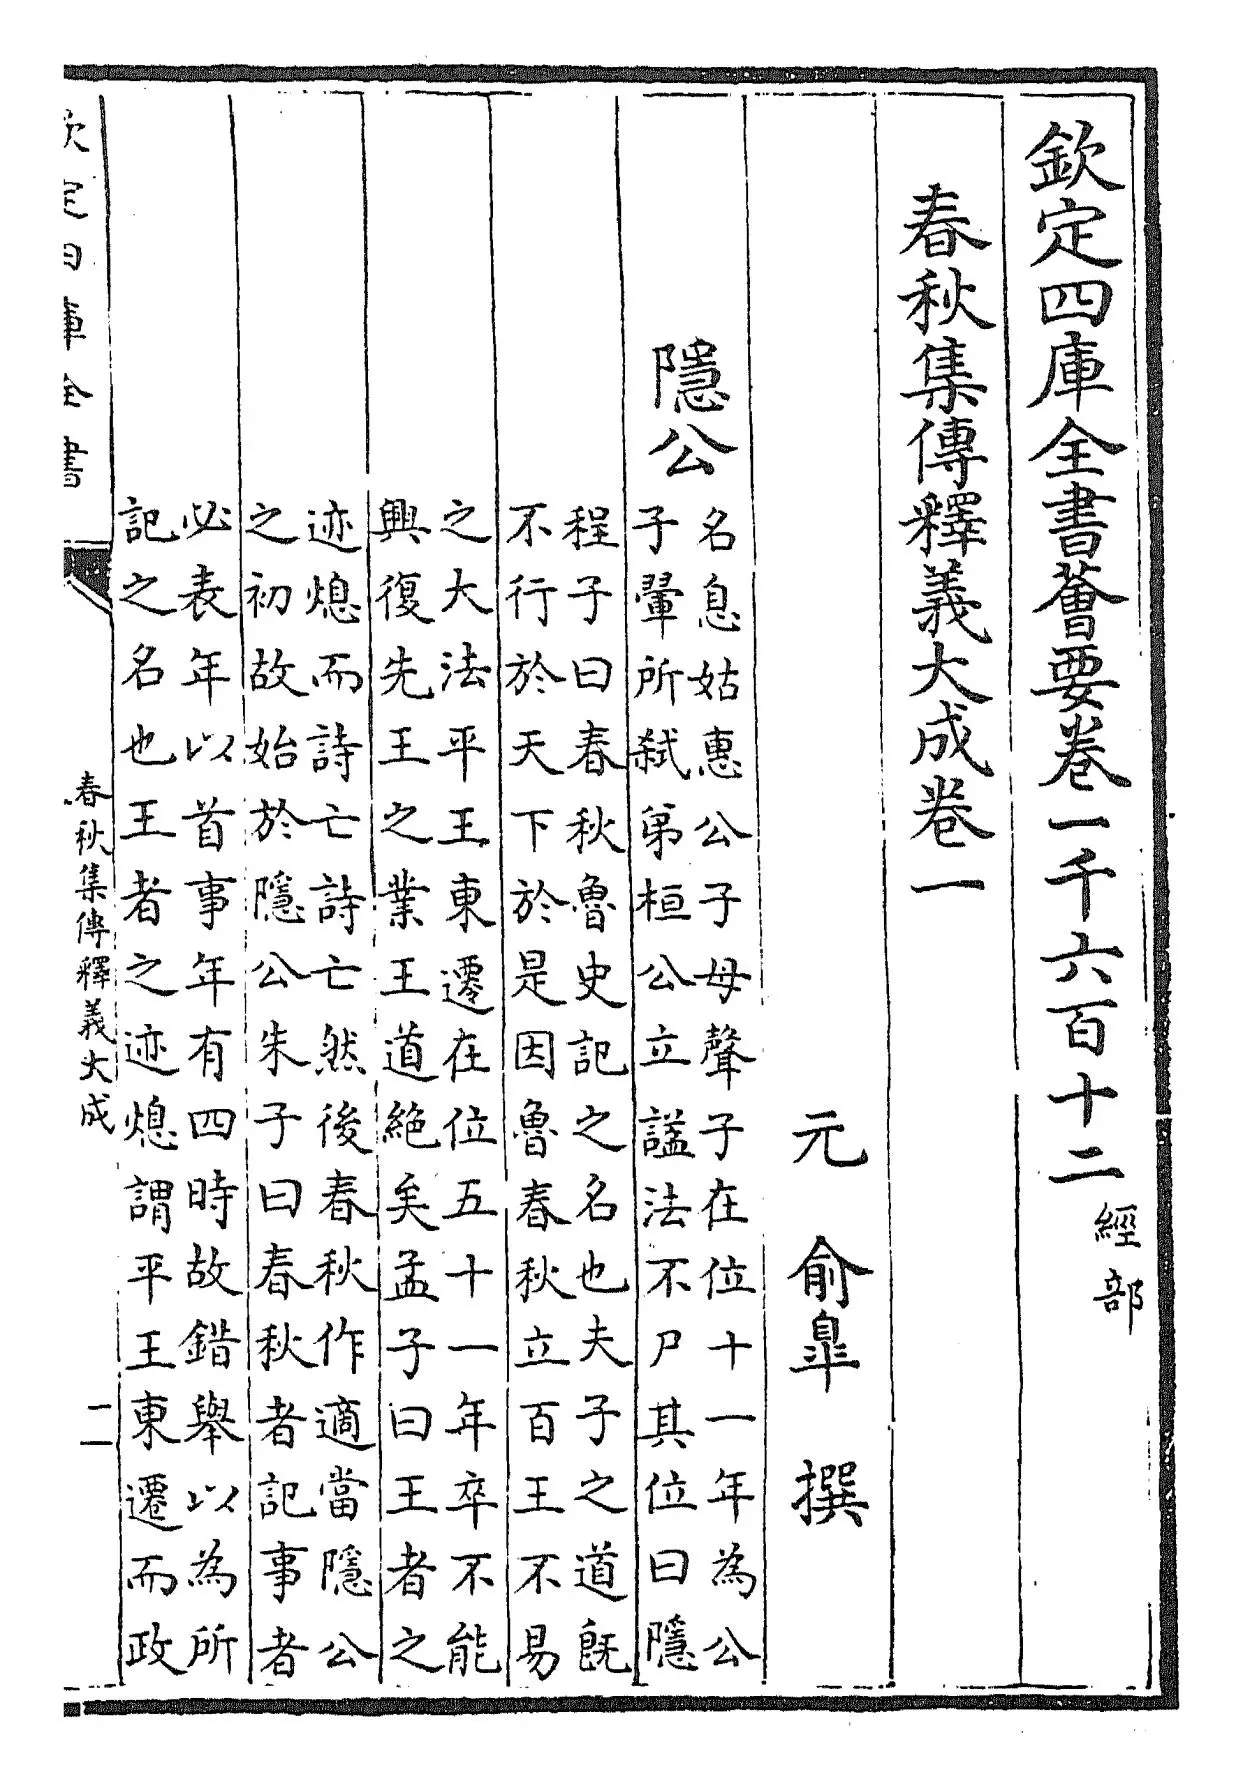 欽定四庫全書薈要卷一千六百十二 經部
春秋集傳釋義大成卷一
元 俞皐 撰
隱公
名息姑惠公子母聲子在位十一年為公
子翬所弑弟桓公立諡法不尸其位曰隱
程子曰春秋魯史記之名也夫子之道既
不行於天下於是因魯春秋立百王不易
之大法平王東遷在位五十一年卒不能
興復先王之業王道絶矣孟子曰王者之
迹熄而詩亡詩亡然後春秋作適當隱公
之初故始於隱公朱子曰春秋者記事者
必表年以首事年有四時故錯舉以為所
記之名也王者之迹熄謂平王東遷而政
欽定四庫全書
春秋集傳釋義大成